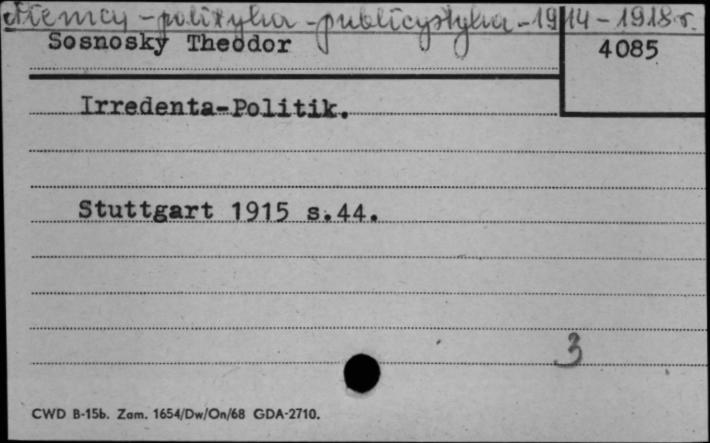 Niemcy - polityka - publicystyka - 1914 - 1918 r.
Sosnosky Theodor
4085
Irredenta-Politik.
Stuttgart 1915 s.44.
3
CWD B-15b. Zam. 1654/Dw/On/68 GDA-2710.